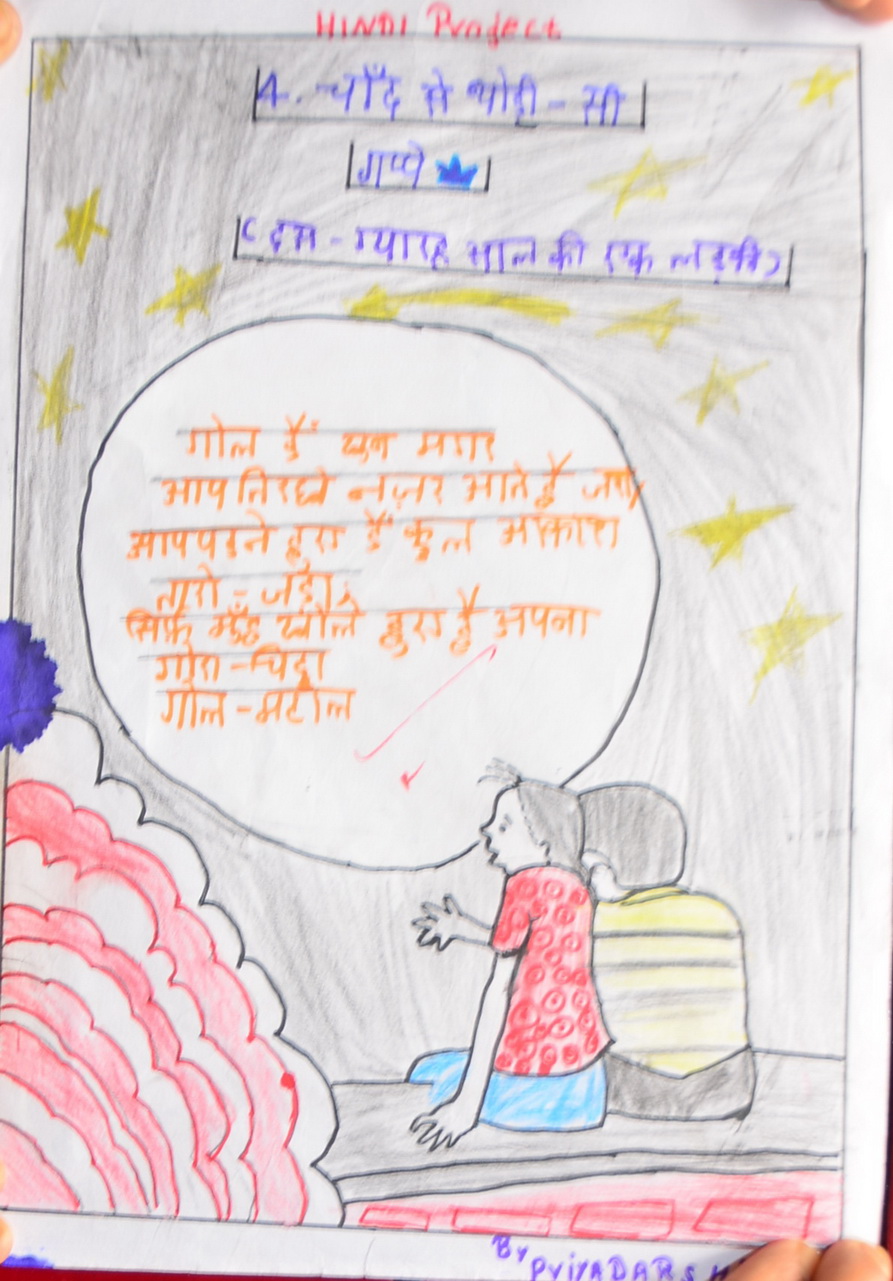 HINDI Project
4. चाँद से थोड़ी-सी
गप्पे
(दस-ग्यारह साल की एक लड़की)
गोल हैं खुब मगर
आप तिरछे नज़र आते हैं ज़रा
आप पहने हुए हैं कुल आकाश
तारों-जड़ा
सिर्फ मुँह खोले हुए हैं अपना
गोरा-चिट्टा
गोल-मटोल
By